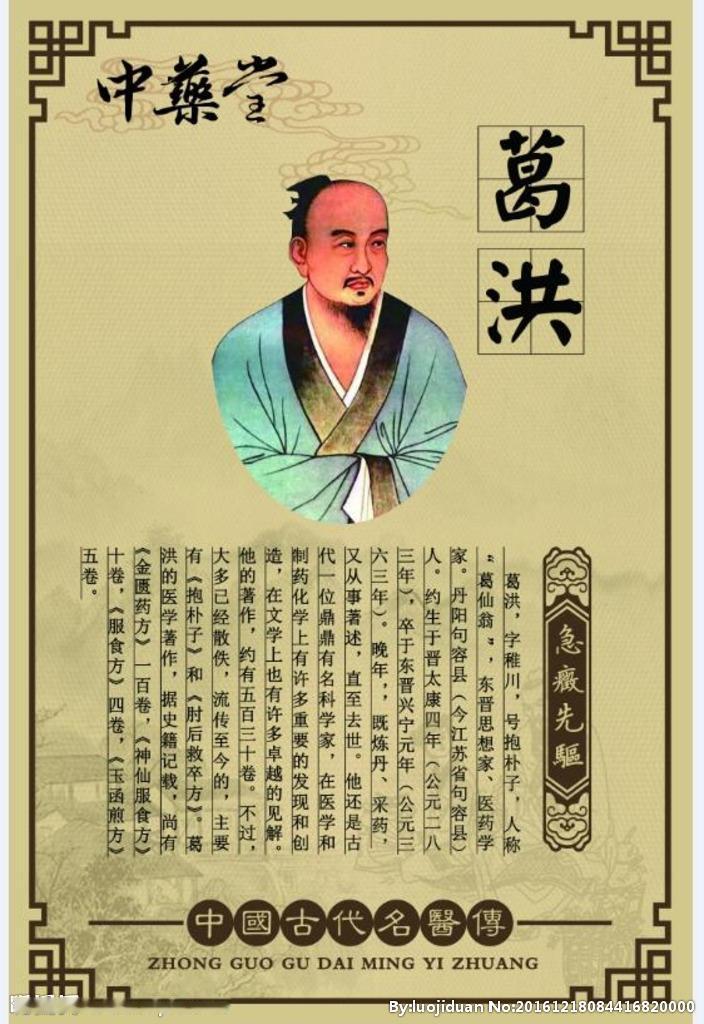 中藥堂
葛洪
急癥先驅
葛洪，字稚川，号抱朴子，人称
“葛仙翁”，东晋思想家、医药学
家。丹阳句容县（今江苏省句容县）
人。约生于晋太康四年（公元二八
三年），卒于东晋兴宁元年（公元三
六三年）。晚年，，既炼丹、采药，
又从事著述，直至去世。他还是古
代一位鼎鼎有名科学家，在医学和
制药化学上有许多重要的发现和创
造，在文学上也有许多卓越的见解。
他的著作，约有五百三十卷。不过，
大多已经散佚，流传至今的，主要
有《抱朴子》和《肘后救卒方》。葛
洪的医学著作，据史籍记载，尚有
《金匮药方》一百卷，《神仙服食方》
十卷，《服食方》四卷，《玉函煎方》
五卷。
中國古代名醫傳
ZHONG GUO GU DAI MING YI ZHUANG
By:luojiduan No:20161218084416820000